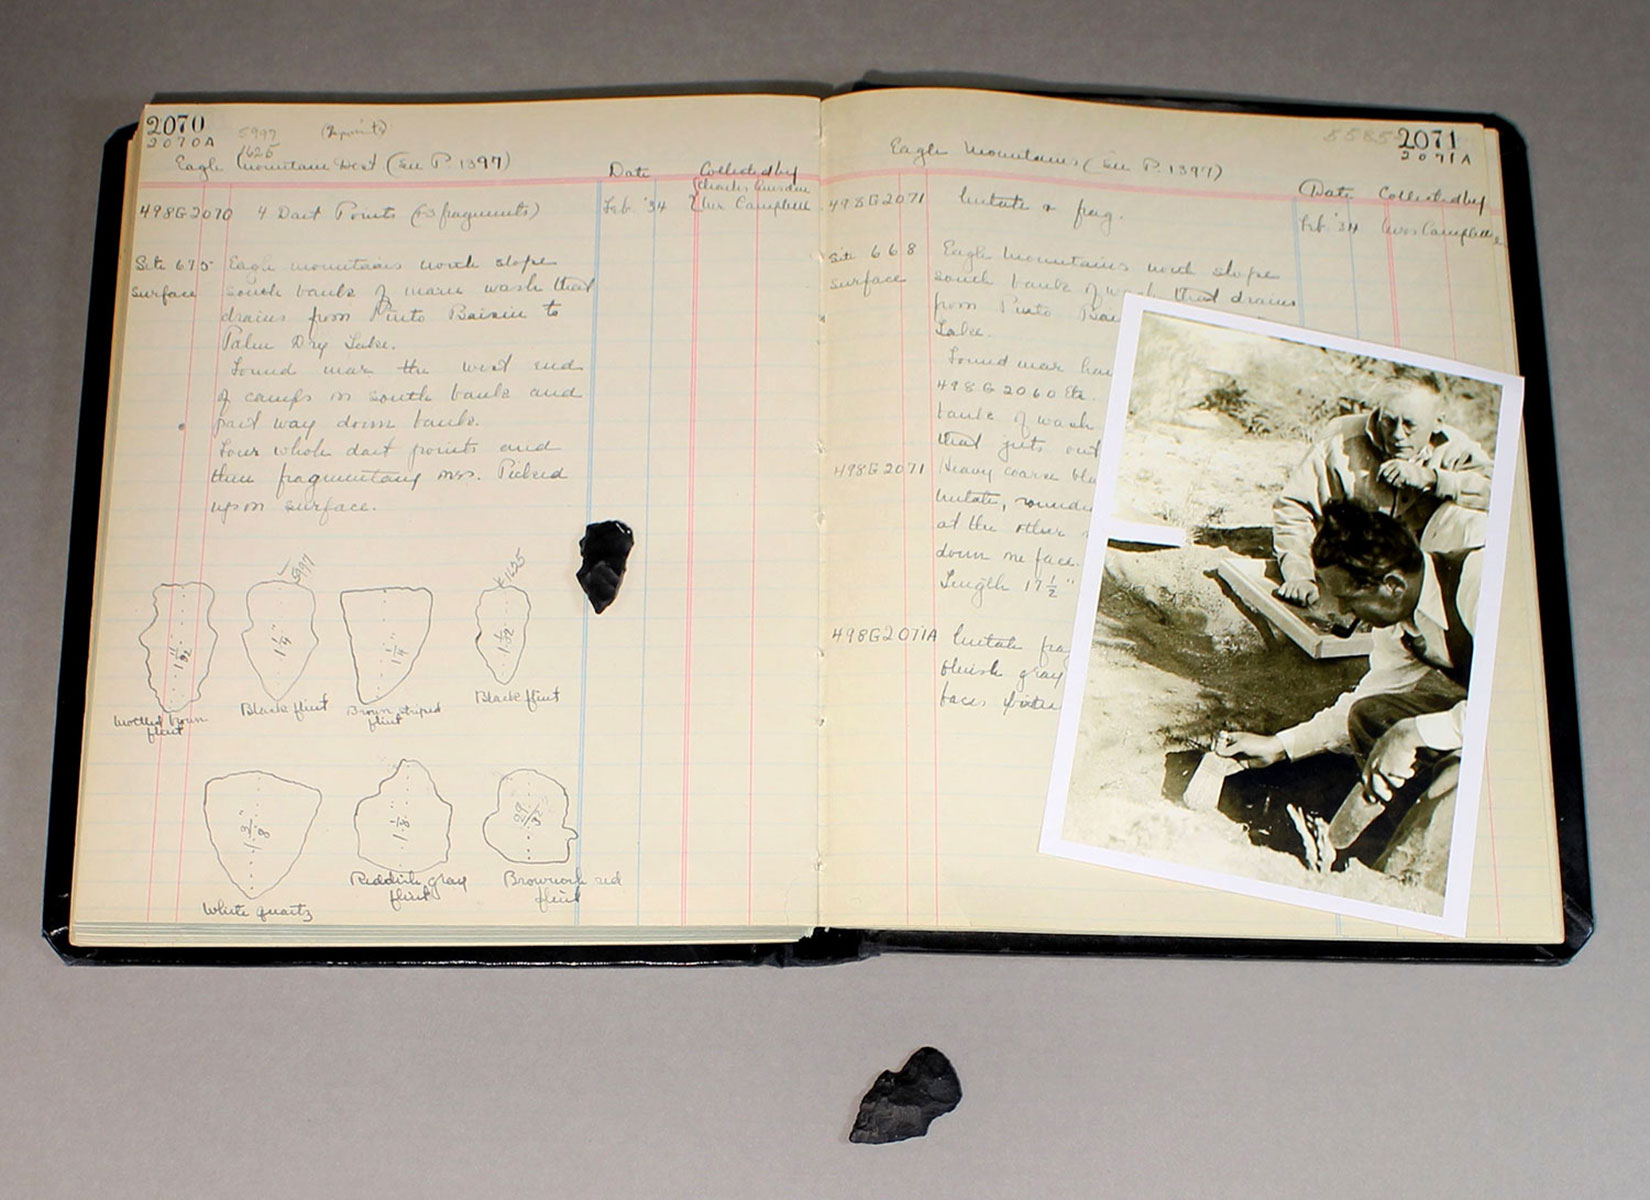 2070
2070A
5997
1625
(2 points)
Eagle Mountains West (See P. 1397)
Date
Collected by
Charles
498G2070 4 Dart Points (& 3 fragments) Feb. '34 Campbell
Site 675 Eagle mountains north slope
surface south bank of main wash that
drains from Pinto Basin to
Palm Dry Lake.
Found near the west end
of camps on south bank and
part way down bank.
Four whole dart points and
three fragmentary ones. Picked
up on surface.
5997
1625
1 1/4"
1 1/4"
Mottled brown
flint
Black flint
Brown striped
flint
Black flint
White quartz
Reddish gray
flint
Brownish red
flint
5585
2071
2071A
Eagle Mountains (See P. 1397)
Date Collected by
498G2071 Metate & frag. Feb. '34 Campbell
Site 668 Eagle Mountains north slope
surface south bank of wash that drains
from Pinto
Lake.
Found near
498G2060 Etc.
bank of wash
that juts out
498G2071 Heavy coarse
Metate,
at the other
down one face.
Length 17 1/2"
498G2071A Metate
bluish gray
faces